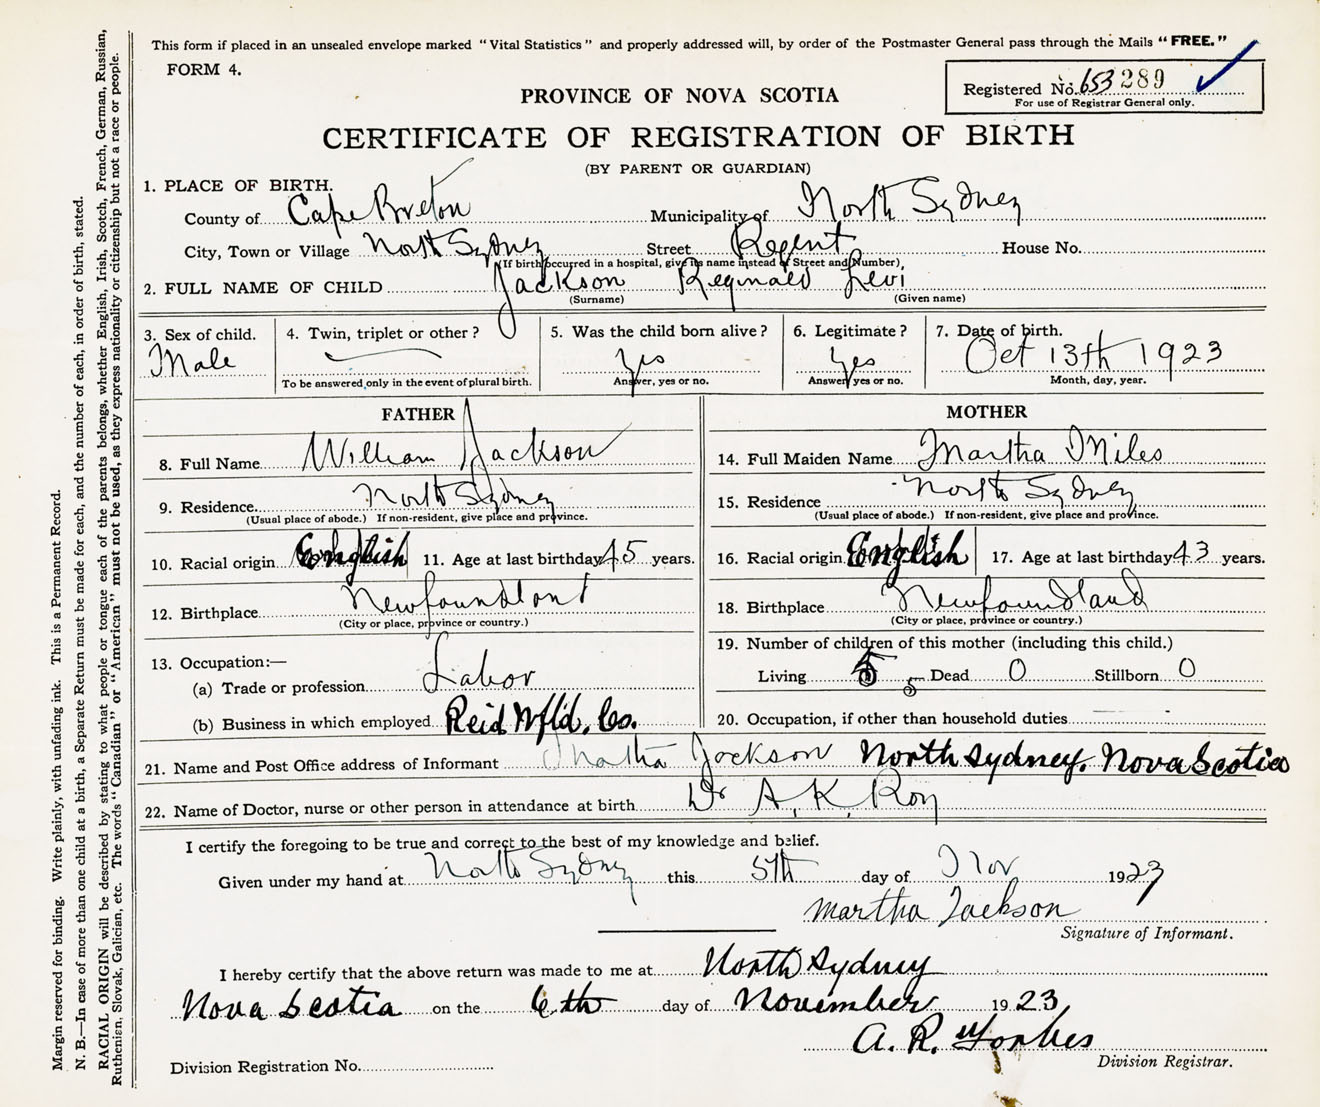 This form if placed in an unsealed envelope marked "Vital Statistics" and properly addressed will, by order of the Postmaster General pass through the Mails "FREE."
FORM 4.
Registered No. 653 289
For use of Registrar General only.
PROVINCE OF NOVA SCOTIA
CERTIFICATE OF REGISTRATION OF BIRTH
(BY PARENT OR GUARDIAN)
1. PLACE OF BIRTH.
County of Cape Breton Municipality of North Sydney
City, Town or Village North Sydney Street Regent House No.
(If birth occurred in a hospital, give its name instead of Street and Number),
2. FULL NAME OF CHILD Jackson Reginald Levi
(Surname) (Given name)
3. Sex of child. 4. Twin, triplet or other? 5. Was the child born alive? 6. Legitimate? 7. Date of birth.
Male Yes Yes Oct 13th 1923
To be answered only in the event of plural birth. Answer, yes or no. Answer yes or no. Month, day, year.
FATHER MOTHER
8. Full Name William Jackson 14. Full Maiden Name Martha Miles
9. Residence North Sydney 15. Residence North Sydney
(Usual place of abode.) If non-resident, give place and province. (Usual place of abode.) If non-resident, give place and province.
10. Racial origin English 11. Age at last birthday 45 years. 16. Racial origin English 17. Age at last birthday 43 years.
12. Birthplace Newfoundlant 18. Birthplace Newfoundland
(City or place, province or country.) (City or place, province or country.)
13. Occupation:— 19. Number of children of this mother (including this child.)
(a) Trade or profession Labor Living 5 Dead 0 Stillborn 0
(b) Business in which employed Reid Nfld. Co. 20. Occupation, if other than household duties
21. Name and Post Office address of Informant Matha Jackson North Sydney. Nova Scotia
22. Name of Doctor, nurse or other person in attendance at birth Dr A. K. Roy
I certify the foregoing to be true and correct to the best of my knowledge and belief.
Given under my hand at North Sydney this 5th day of Nov 1923
Martha Jackson
Signature of Informant.
I hereby certify that the above return was made to me at North Sydney
Nova Scotia on the 6th day of November 1923
A. R. Forbes
Division Registration No. Division Registrar.
Margin reserved for binding. Write plainly, with unfading ink. This is a Permanent Record.
N. B.—In case of more than one child at a birth, a Separate Return must be made for each, and the number of each, in order of birth, stated.
RACIAL ORIGIN will be described by stating to what people or tongue each of the parents belongs, whether English, Irish, Scotch, French, German, Russian,
Ruthenien, Slovak, Galician, etc. The words "Canadian" or "American" must not be used, as they express nationality or citizenship but not a race or people.